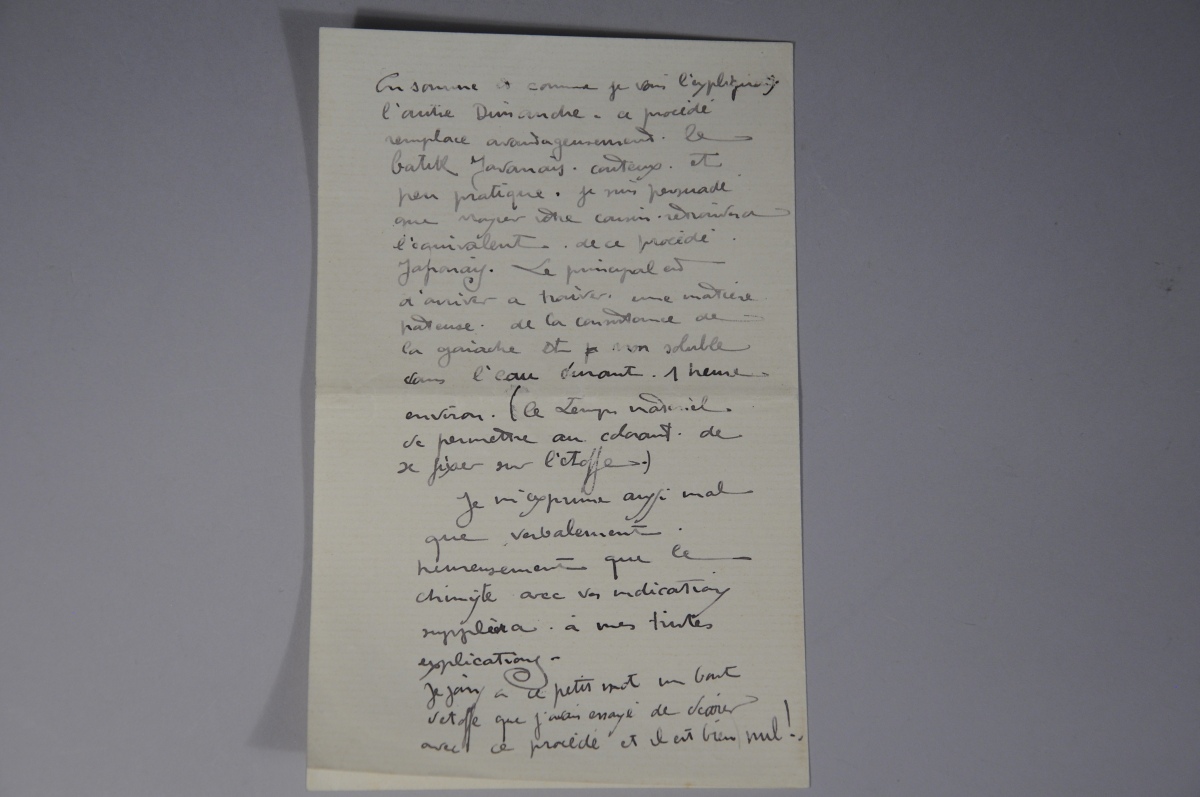 En somme et comme je vous l'expliquais
l'autre Dimanche. ce procédé
remplace avantageusement. le
batik Javanais. couteux. et
peu pratique. je suis persuadé
que votre cousin. retrouvera
l'équivalent. de ce procédé.
Japonais. Le principal est
d'arriver a trouver. une matière
pateuse. de la consistance de
la gouache et non soluble
dans l'eau durant. 1 heure
environ. (le Temps matériel.
de permettre au colorant. de
se fixer sur l'étoffe.)
Je m'exprime aussi mal
que verbalement.
heureusement que le
chimiste avec vos indications
suppléera. à mes tristes
explications.
Je joins à ce petit mot un bout
d'etoffe que j'avais essayé de décorer
avec ce procédé et il est bien nul!